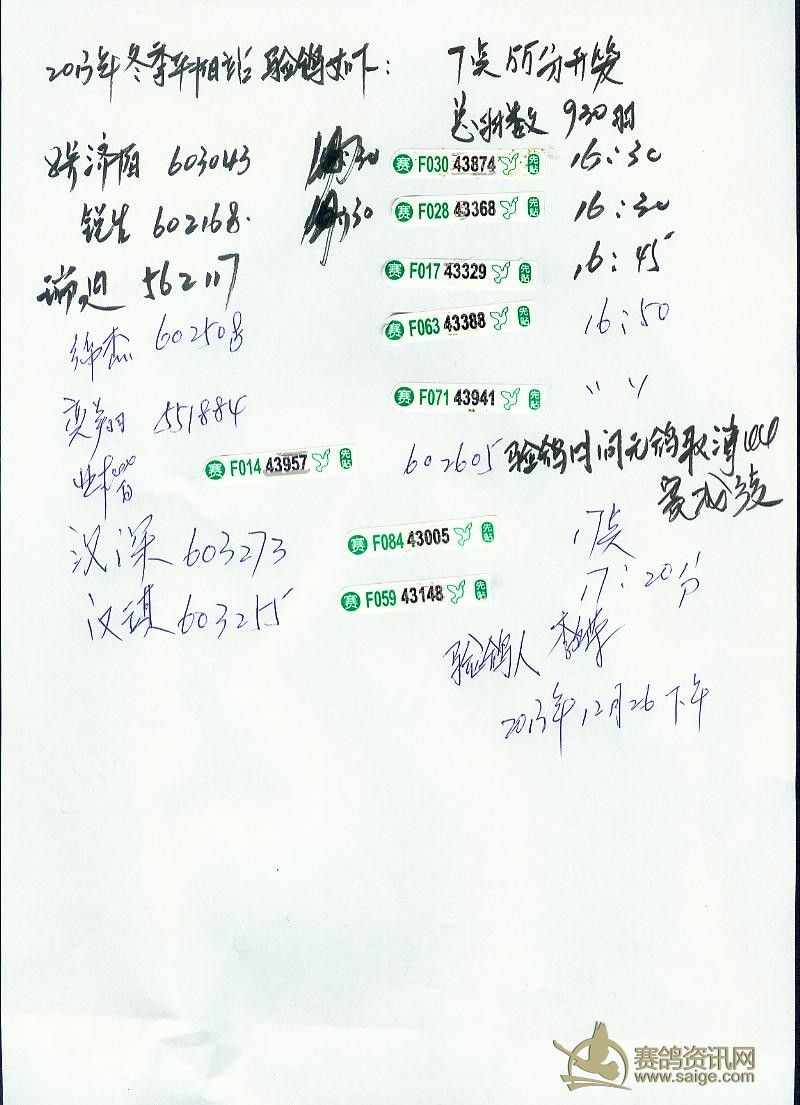 2013年冬季平阳站验鸽如下: 7点55分开笼
总羽数 930羽
济 603043 赛 F030 43874 先贴 16:30
锐生 602168. 赛 F028 43368 先贴 16:30
瑞 562117 赛 F017 43329 先贴 16:45
杰 602508 赛 F063 43388 先贴 16:50
翔 551884 赛 F071 43941 先贴 〃 〃
赛 F014 43957 先贴 602605 验鸽时间无鸽取
赛成绩
汉深 603273 赛 F084 43005 先贴 17点
汉琪 603215 赛 F059 43148 先贴 17:20分
验鸽人 李
2013年12月26下午
赛鸽资讯网
www.saige.com